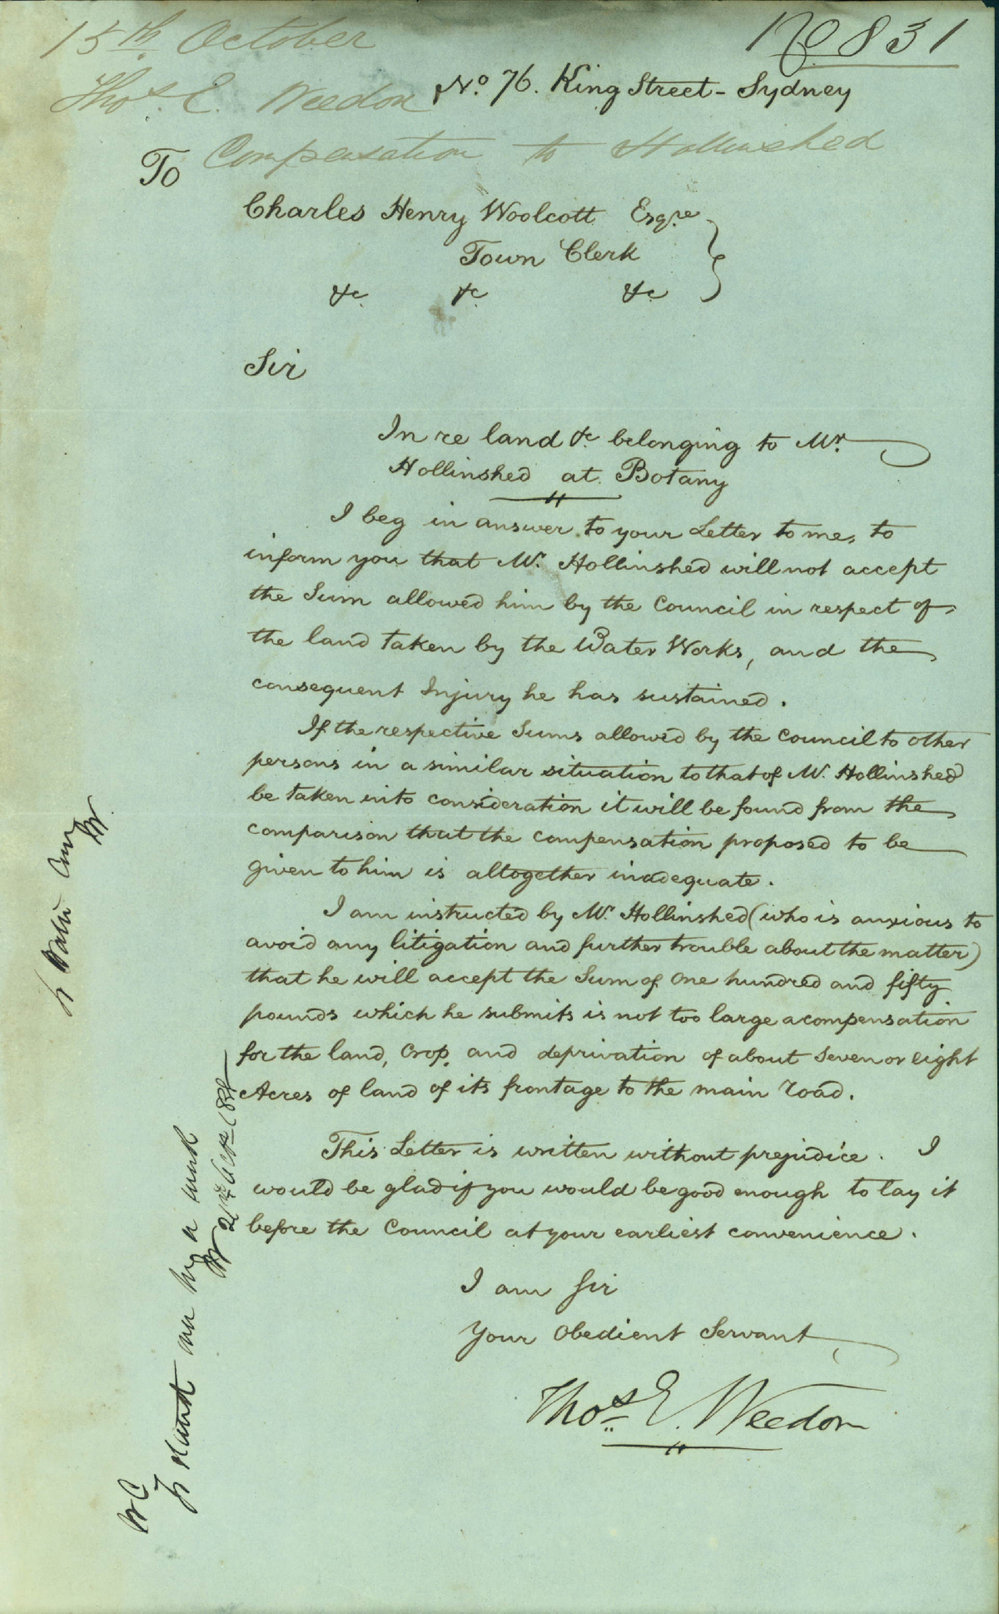 15th October
No 831
Thos. E. Weedon
No. 76. King Street - Sydney
Compensation to Hollinshed
To
Charles Henry Woolcott Esqre
Town Clerk
&c. &c. &c.
Sir
In re land &c belonging to Mr.
Hollinshed at Botany
I beg in answer to your Letter to me, to
inform you that Mr. Hollinshed will not accept
the Sum allowed him by the Council in respect of
the land taken by the Water Works, and the
consequent Injury he has sustained.
If the respective Sums allowed by the Council to other
persons in a similar situation to that of Mr. Hollinshed
be taken into consideration it will be found from the
comparison that the compensation proposed to be
given to him is altogether inadequate.
I am instructed by Mr. Hollinshed (who is anxious to
avoid any litigation and further trouble about the matter)
that he will accept the Sum of One hundred and fifty
pounds which he submits is not too large a compensation
for the land, Crop, and deprivation of about Seven or eight
Acres of land of its frontage to the main Road.
This Letter is written without prejudice. I
would be glad if you would be good enough to lay it
before the Council at your earliest convenience.
I am Sir
Your Obedient Servant
Thos. E. Weedon
W C